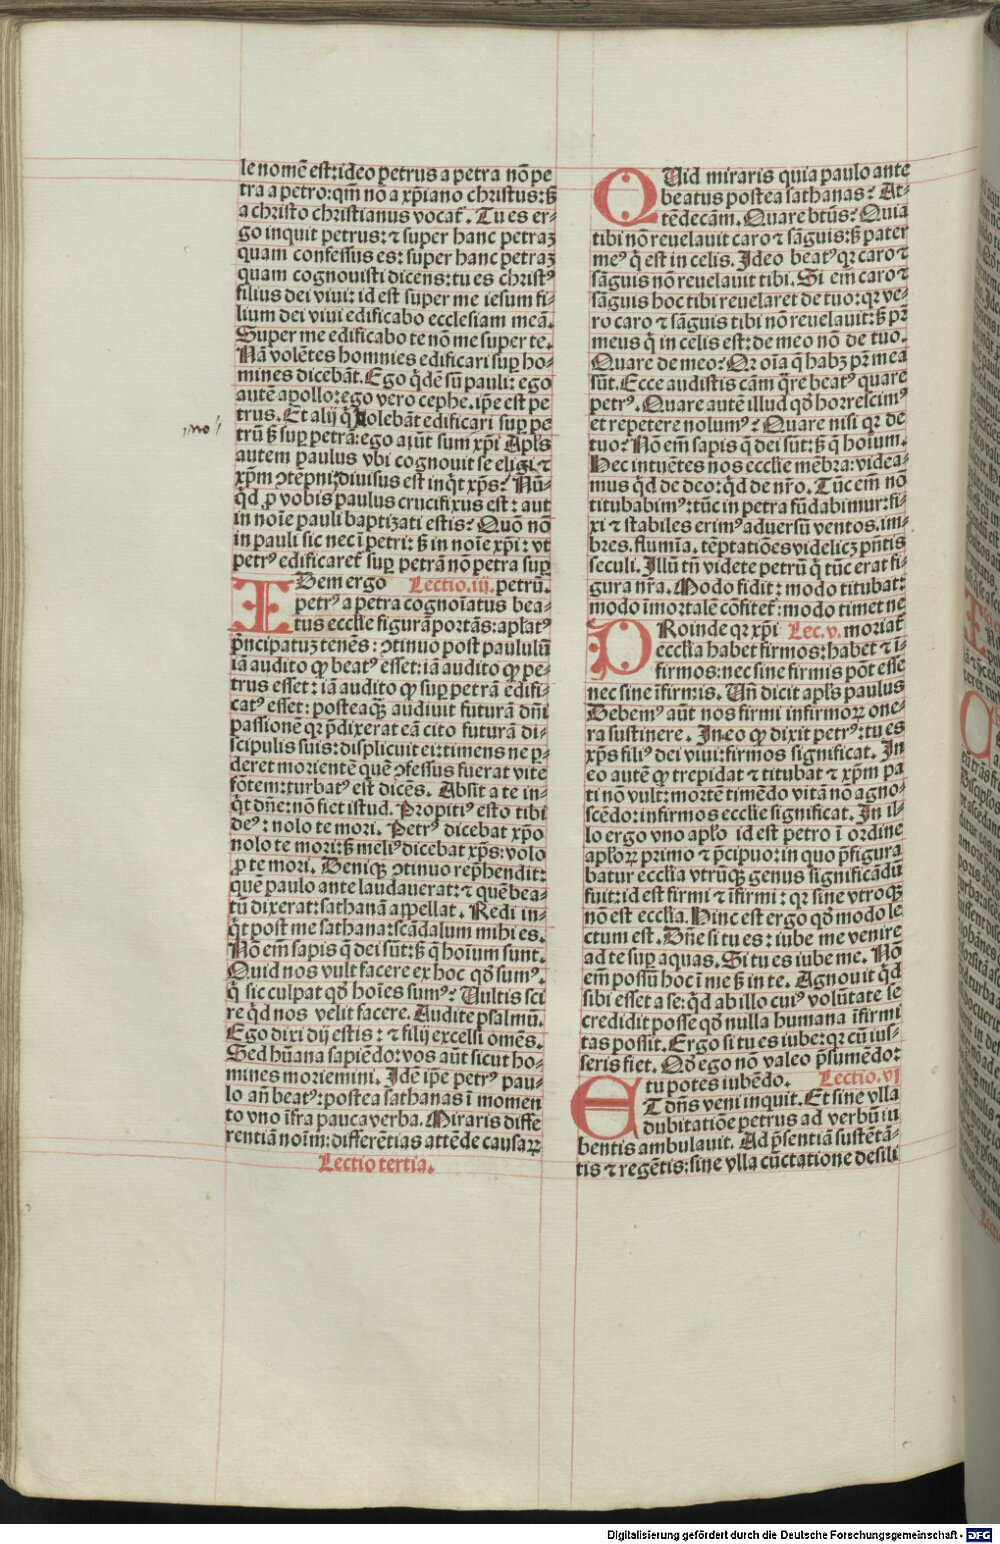 le nomē est: ideo petrus a petra nō pe
tra a petro: qm̄ nō a xp̄iano christus: sꝫ
a christo christianus vocat̄. Tu es er-
go inquit petrus: ⁊ super hanc petraꝫ
quam confessus es: super hanc petraꝫ
quam cognouisti dicens: tu es christꝰ
filius dei viui: id est super me iesum fi-
lium dei viui edificabo ecclesiam meā.
Super me edificabo te nō me super te.
Nā volētes homnies edificari suꝑ ho-
mines dicebāt. Ego q̄dē sū pauli: ego
autē apollo: ego vero cephe. ip̄e est pe
trus. Et alij q̄ nolebāt edificari suꝑ pe
trū sꝫ suꝑ petrā: ego aiūt sum xp̄i Apl̄s
autem paulus vbi cognouit se eligi ⁊
xp̄m ꝯtēpni: diuisus est inq̄t xp̄s? Nū-
q̄d ꝓ vobis paulus crucifixus est: aut
in noīe pauli baptizati estis? Quō nō
in pauli sic nec ī petri: sꝫ in noīe xp̄i: vt
petrꝰ edificaret̄ suꝑ petrā nō petra suꝑ
IDem ergo Lectio.iij. petrū.
petrꝰ a petra cognoīatus bea-
tus eccl̄ie figurā portās: apl̄atꝰ
p̄ncipatuꝫ tenēs: ꝯtinuo post paululū
iā audito ꝙ beatꝰ esset: iā audito ꝙ pe-
trus esset: iā audito ꝙ suꝑ petrā edifi-
catꝰ esset: posteaqꝫ audiuit futurā dn̄i
passionē qꝛ p̄dixerat eā cito futurā di-
scipulis suis: displicuit ei: timens ne ꝑ-
deret morientē quē ꝯfessus fuerat vite
fōtem: turbatꝰ est dicēs. Absit a te in-
q̄t dn̄e: nō fiet istud. Propitiꝰ esto tibi
deꝰ: nolo te mori. Petrꝰ dicebat xp̄o
nolo te mori: sꝫ meliꝰ dicebat xp̄s: volo
ꝓ te mori. Deniqꝫ ꝯtinuo rep̄hendit:
quē paulo ante laudauerat: ⁊ quē bea-
tū dixerat: sathanā appellat. Redi in-
q̄t post me sathana: scādalum mihi es.
Nō em̄ sapis q̄ dei sūt: sꝫ q̄ hoīum sunt.
Quid nos vult facere ex hoc qd̄ sumꝰ.
q̄ sic culpat qd̄ hoīes sumꝰ? Vultis sci
re q̄d nos velit facere. Audite psalmū.
Ego dixi dij estis: ⁊ filij excelsi omēs.
Sed hūana sapiēdo: vos aūt sicut ho-
mines moriemini. Idē ip̄e petrꝰ pau-
lo an̄ beatꝰ: postea sathanas ī momen
to vno īfra pauca verba. Miraris diffe
rentiā noīm: differētias attēde causaꝝ
Lectio tertia.
QVid miraris quia paulo ante
beatus postea sathanas? At-
tēde cām. Quare btūs? Quia
tibi nō reuelauit caro ⁊ sāguis: sꝫ pater
meꝰ q̄ est in celis. Ideo beatꝰ qꝛ caro ⁊
sāguis nō reuelauit tibi. Si em̄ caro ⁊
sāguis hoc tibi reuelaret de tuo: qꝛ ve-
ro caro ⁊ sāguis tibi nō reuelauit: sꝫ pr̄
meus q̄ in celis est: de meo nō de tuo.
Quare de meo? Qꝛ oīa q̄ habꝫ pr̄ mea
sūt. Ecce audistis cām q̄re beatꝰ quare
petrꝰ. Quare autē illud qd̄ horrescimꝰ
et repetere nolumꝰ? Quare nisi qꝛ de
tuo? Nō em̄ sapis q̄ dei sūt: sꝫ q̄ hoīum.
Hec intuētes nos eccl̄ie mēbra: videa-
mus q̄d de deo: q̄d de nr̄o. Tūc em̄ nō
titubabimꝰ: tūc in petra fūdabimur: fi-
xi ⁊ stabiles erimꝰ aduersū ventos. im-
bres. flumīa. tēptatiōes videlicꝫ p̄ntis
seculi. Illū tn̄ videte petrū q̄ tūc erat fi-
gura nr̄a. Modo fidit: modo titubat:
modo īmortalē cōfitet̄: modo timet ne
PRoinde qꝛ xp̄i Lec.v. moriat̄
ecccl̄ia habet firmos: habet ⁊ ī-
firmos: nec sine firmis pōt esse
nec sine īfirmis. Vn̄ dicit apl̄s paulus
Debemꝰ aūt nos firmi infirmoꝝ one-
ra sustinere. In eo ꝙ dixit petrꝰ: tu es
xp̄s filiꝰ dei viui: firmos significat. In
eo autē ꝙ trepidat ⁊ titubat ⁊ xp̄m pa
ti nō vult: mortē timēdo vitā nō agno-
scēdo: infirmos eccl̄ie significat. In il-
lo ergo vno apl̄o id est petro ī ordine
apl̄oꝝ primo ⁊ p̄cipuo: in quo p̄figura
batur eccl̄ia vtrūqꝫ genus significādū
fuit: id est firmi ⁊ īfirmi: qꝛ sine vtroqꝫ
nō est eccl̄ia. Hinc est ergo qd̄ modo le
ctum est. Dn̄e si tu es: iube me venire
ad te suꝑ aquas. Si tu es iube me. Nō
em̄ possū hoc ī me sꝫ in te. Agnouit q̄d
sibi esset a se: q̄d ab illo cuiꝰ volūtate se
credidit posse qd̄ nulla humana īfirmi
tas possit. Ergo si tu es iube: qꝛ cū ius-
seris fiet. Qd̄ ego nō valeo p̄sumēdo:
tu potes iubēdo. Lectio.vj
ET dn̄s veni inquit. Et sine vlla
dubitatiōe petrus ad verbū iu
bentis ambulauit. Ad p̄sentiā sustētā-
tis ⁊ regētis: sine vlla cūctatione desili